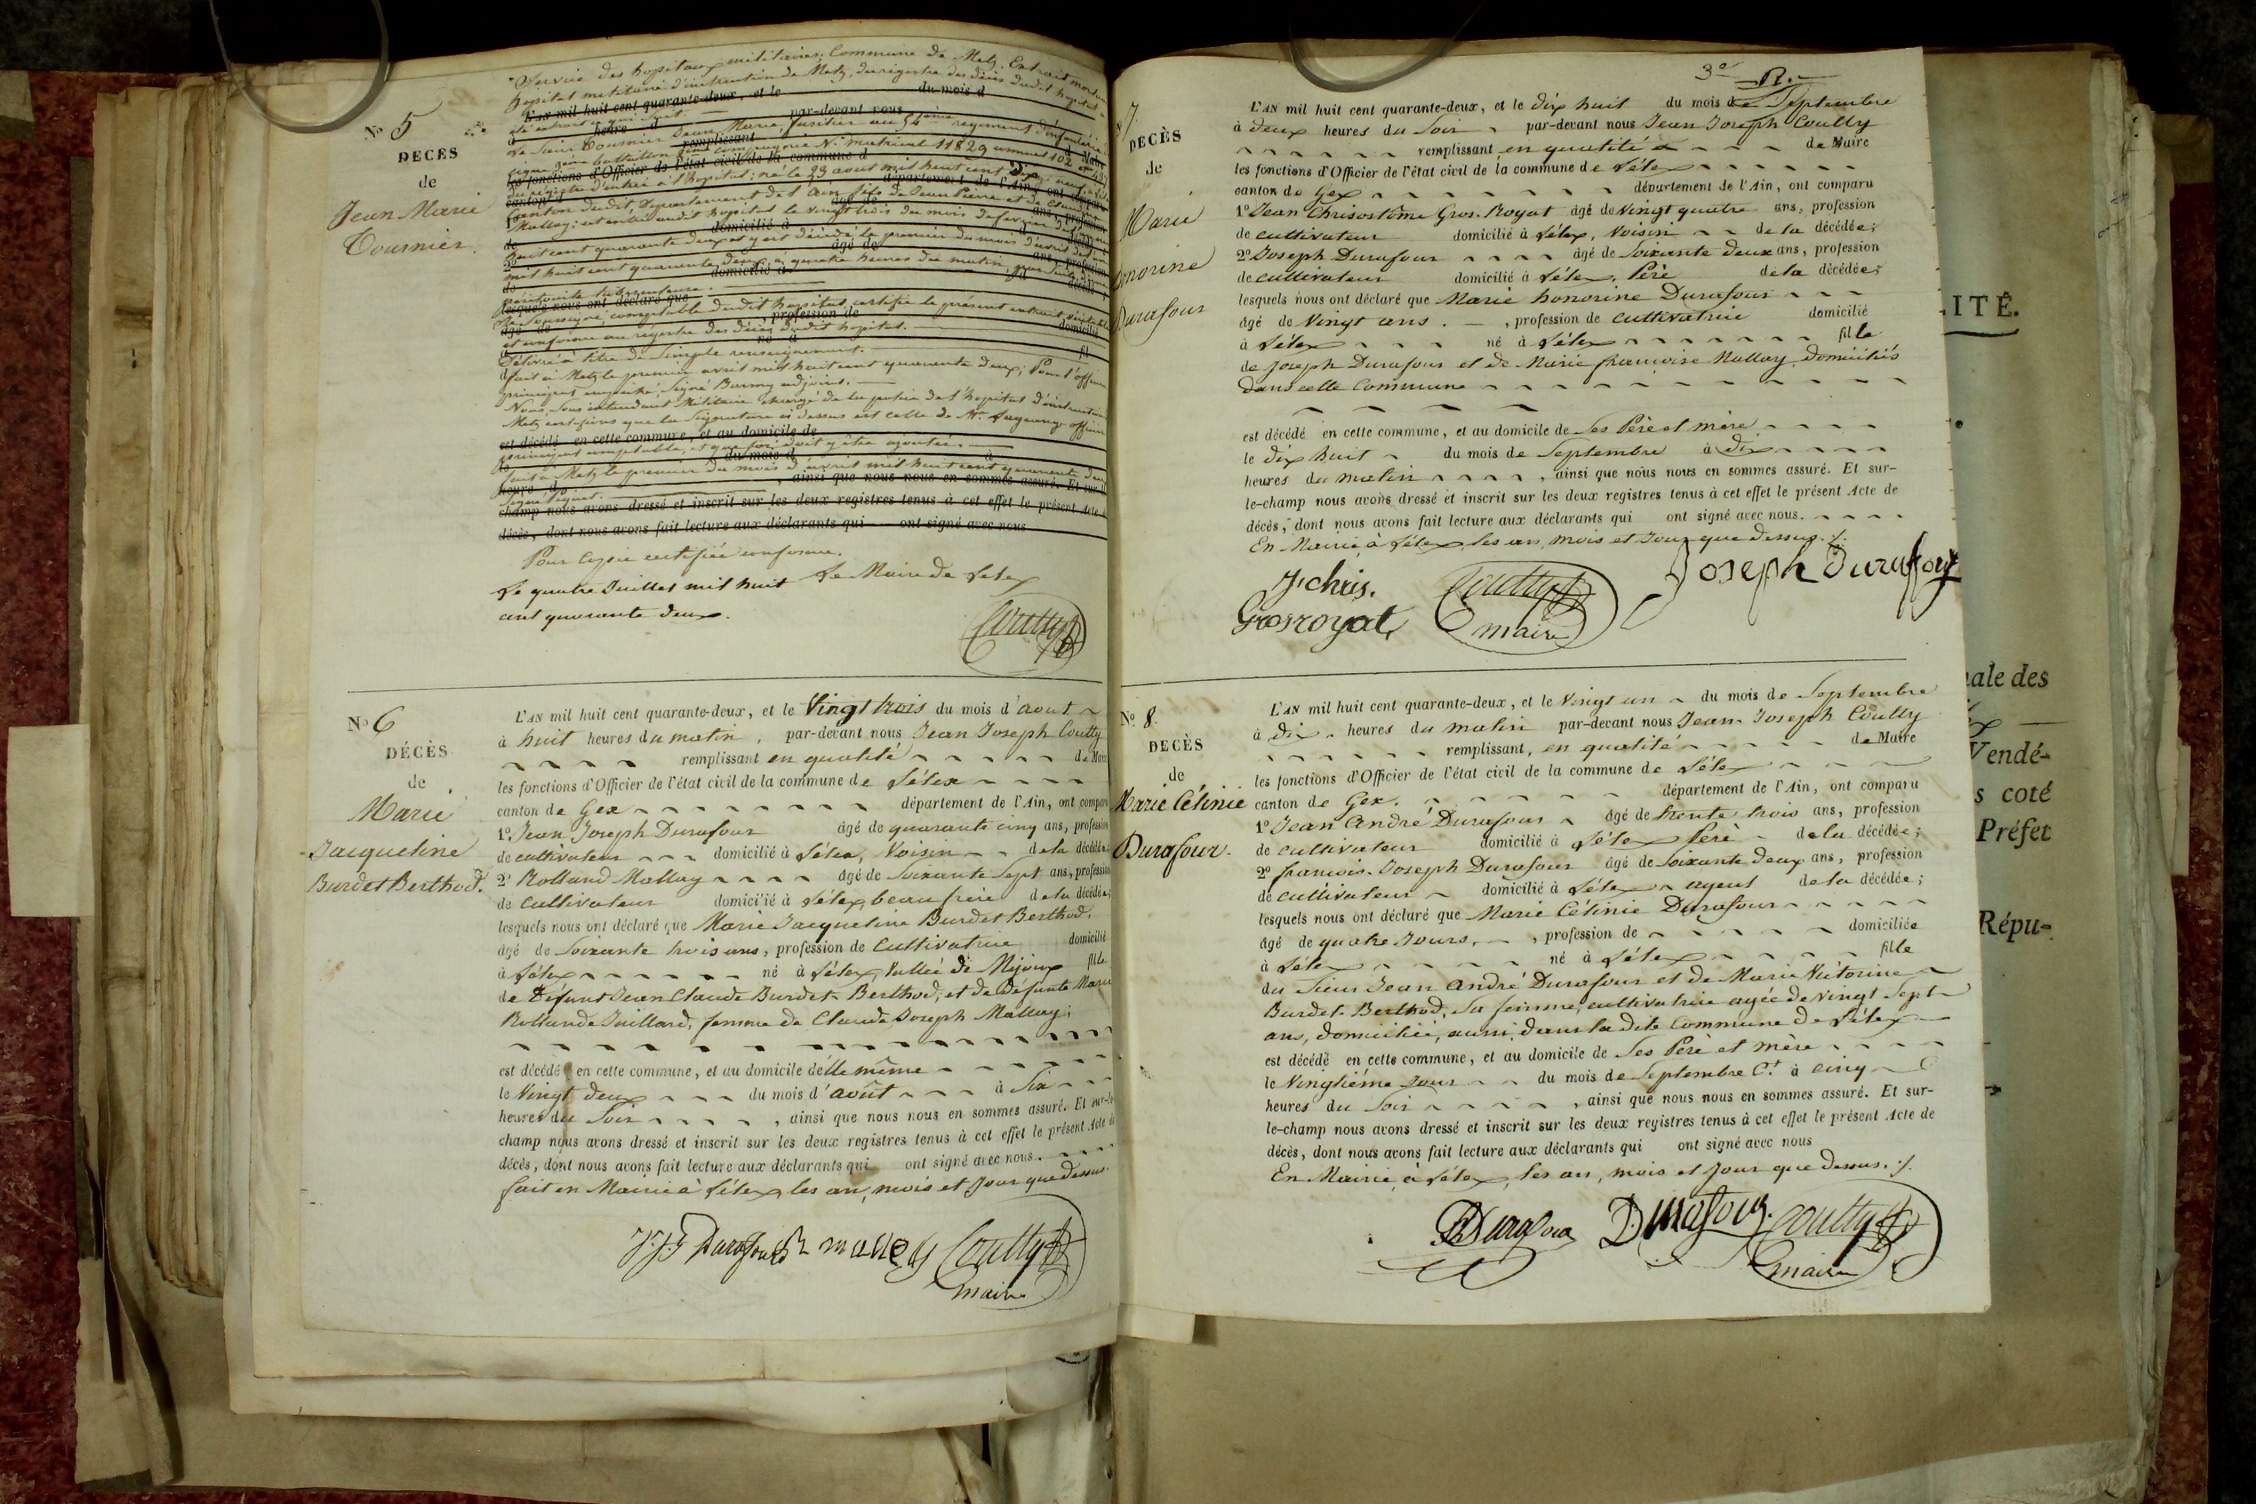 N° 5
DÉCÈS
de
Jean Marie
Tournier.
Service des hopitaux militaires; Commune de Metz. Extrait mortu
hopital militaire d'instruction de Metz, du registre des décès du dit hopital
L'AN mil huit cent quarante-deux, et le du mois d
a été extrait ce qui suit
heure d par-devant nous
Le Sieur Tournier Jean Marie, fusilier au 54ème régiment d'infanterie
remplissant d Maire
bataillon compagnie N° matricule 11829
les fonctions d'Officier de l'état civil de la commune d
du registre d'entrée à l'hopital; né le 23 aout mil huit cent dix neuf à
canton d département de l'Ain, ont comparu
canton du dit, Département de l'Ain fils de Jean Pierre et de
1° âgé de ans, profession
Mallay; est entré au dit hopital le vingt trois du mois de fevrier
de domicilié à d décédé
huit cent quarante deux et y est décédé le premier du mois d'avril
2° âgé de ans, profession
mil huit cent quarante deux, à quatre heures du matin, par suite de
de domicilié à d décédé
péritonite
lesquels nous ont déclaré que
Je soussigné, comptable du dit hopital, certifie le présent extrait véritable
âgé de , profession de domicilié
et conforme au registre des décès du dit hopital.
à né à fil
Délivré à titre de simple renseignement.
d
fait à Metz le premier avril mil huit cent quarante deux; Pour l'officier
principal empêché, signé adjoint.
Nous, Sous intendant Militaire chargé de la police de l'hopital d'instruction
Metz certifions que la signature ci dessus est celle de Mr. officier
est décédé en cette commune, et au domicile de
principal comptable, et que foi doit y être ajoutée.
le du mois d à
fait à Metz le premier du mois d'avril mil huit cent quarante deux
heure d , ainsi que nous nous en sommes assuré. Et sur-le
signé
champ nous avons dressé et inscrit sur les deux registres tenus à cet effet le présent Acte d
décès, dont nous avons fait lecture aux déclarants qui ont signé avec nous
Pour Copie certifiée conforme.
Le quatre Juillet mil huit Le Maire de Lélex
cent quarante deux.
Coutty
N° 6
DÉCÈS
de
Marie
Jacqueline
Burdet Berthod.
L'AN mil huit cent quarante-deux, et le Vingt trois du mois d'aout
à huit heures du matin, par-devant nous Jean Joseph Coutty
remplissant en qualité de Maire
les fonctions d'Officier de l'état civil de la commune de Lélex
canton de Gex département de l'Ain, ont comparu
1° Jean Joseph Durafour âgé de quarante cinq ans, profession
de cultivateur domicilié à Lélex, Voisin de la décédée
2° Rolland Mallay âgé de Soixante Sept ans, profession
de Cultivateur domicilié à Lélex, beau frère de la décédée;
lesquels nous ont déclaré que Marie Jacqueline Burdet Berthod,
âgé de Soixante trois ans, profession de Cultivatrice domicilié
à Lélex né à Lélex, Vallée de Mijoux fille
de Défunt Jean Claude Burdet-Berthod, et de Défunte Marie
Rollande Juillard, femme de Claude Joseph Mallay;
est décédé en cette commune, et au domicile d'elle même
le Vingt deux du mois d'août à Six
heures du Soir , ainsi que nous nous en sommes assuré. Et sur-le
champ nous avons dressé et inscrit sur les deux registres tenus à cet effet le présent Acte de
décès, dont nous avons fait lecture aux déclarants qui ont signé avec nous.
fait en Mairie à Lélex, les an, mois et Jour que dessus.
J. Jh Durafour R mallay Coutty
maire
3e R.
7.
DÉCÈS
de
Marie
onorine
Durafour
L'AN mil huit cent quarante-deux, et le dix huit du mois de Septembre
à deux heures du Soir par-devant nous Jean Joseph Coutty
remplissant en qualité de Maire
les fonctions d'Officier de l'état civil de la commune de Lélex
canton de Gex département de l'Ain, ont comparu
1° Jean Chrisostôme Gros-Royat âgé de Vingt quatre ans, profession
de cultivateur domicilié à Lélex, Voisin de la décédée;
2° Joseph Durafour âgé de Soixante deux ans, profession
de cultivateur domicilié à Lélex, Père de la décédée;
lesquels nous ont déclaré que Marie honorine Durafour
âgé de Vingt ans. , profession de cultivatrice domicilié
à Lélex né à Lélex fille
de Joseph Durafour et de Marie françoise Mallay, domiciliés
dans cette Commune
est décédé en cette commune, et au domicile de Ses Père et mère
le dix huit du mois de Septembre à dix
heures du matin , ainsi que nous nous en sommes assuré. Et sur-
le-champ nous avons dressé et inscrit sur les deux registres tenus à cet effet le présent Acte de
décès, dont nous avons fait lecture aux déclarants qui ont signé avec nous.
En Mairie, à Lélex, les an, mois et Jour que dessus. /.
J chris. Coutty Joseph Durafour
Grosroyat, maire
N° 8.
DÉCÈS
de
Marie Célinie
Durafour.
L'AN mil huit cent quarante-deux, et le Vingt un du mois de Septembre
à Dix heures du matin par-devant nous Jean-Joseph Coutty
remplissant, en qualité de Maire
les fonctions d'Officier de l'état civil de la commune de Lélex
canton de Gex. département de l'Ain, ont comparu
1° Jean André Durafour âgé de trente trois ans, profession
de cultivateur domicilié à Lélex Père de la décédée;
2° francois-Joseph Durafour âgé de Soixante deux ans, profession
de cultivateur domicilié à Lélex ayeul de la décédée;
lesquels nous ont déclaré que Marie Célinie Durafour
âgé de quatre Jours. , profession de domiciliée
à Lélex né à Lélex fille
du Sieur Jean André Durafour et de Marie Victorine
Burdet-Berthod, Sa femme, cultivatrice agée de Vingt Sept
ans, domiciliée, aussi, dans la dite Commune de Lélex
est décédé en cette commune, et au domicile de Ses Père et mère
le Vingtième Jour du mois de Septembre Ct à cinq
heures du Soir , ainsi que nous nous en sommes assuré. Et sur-
le-champ nous avons dressé et inscrit sur les deux registres tenus à cet effet le présent Acte de
décès, dont nous avons fait lecture aux déclarants qui ont signé avec nous
En Mairie, à Lélex, les an, mois et Jour que dessus. /.
Durafour Durafour. Coutty
maire
ITÉ.
ale des
Vendé-
s coté
Préfet
Répu-